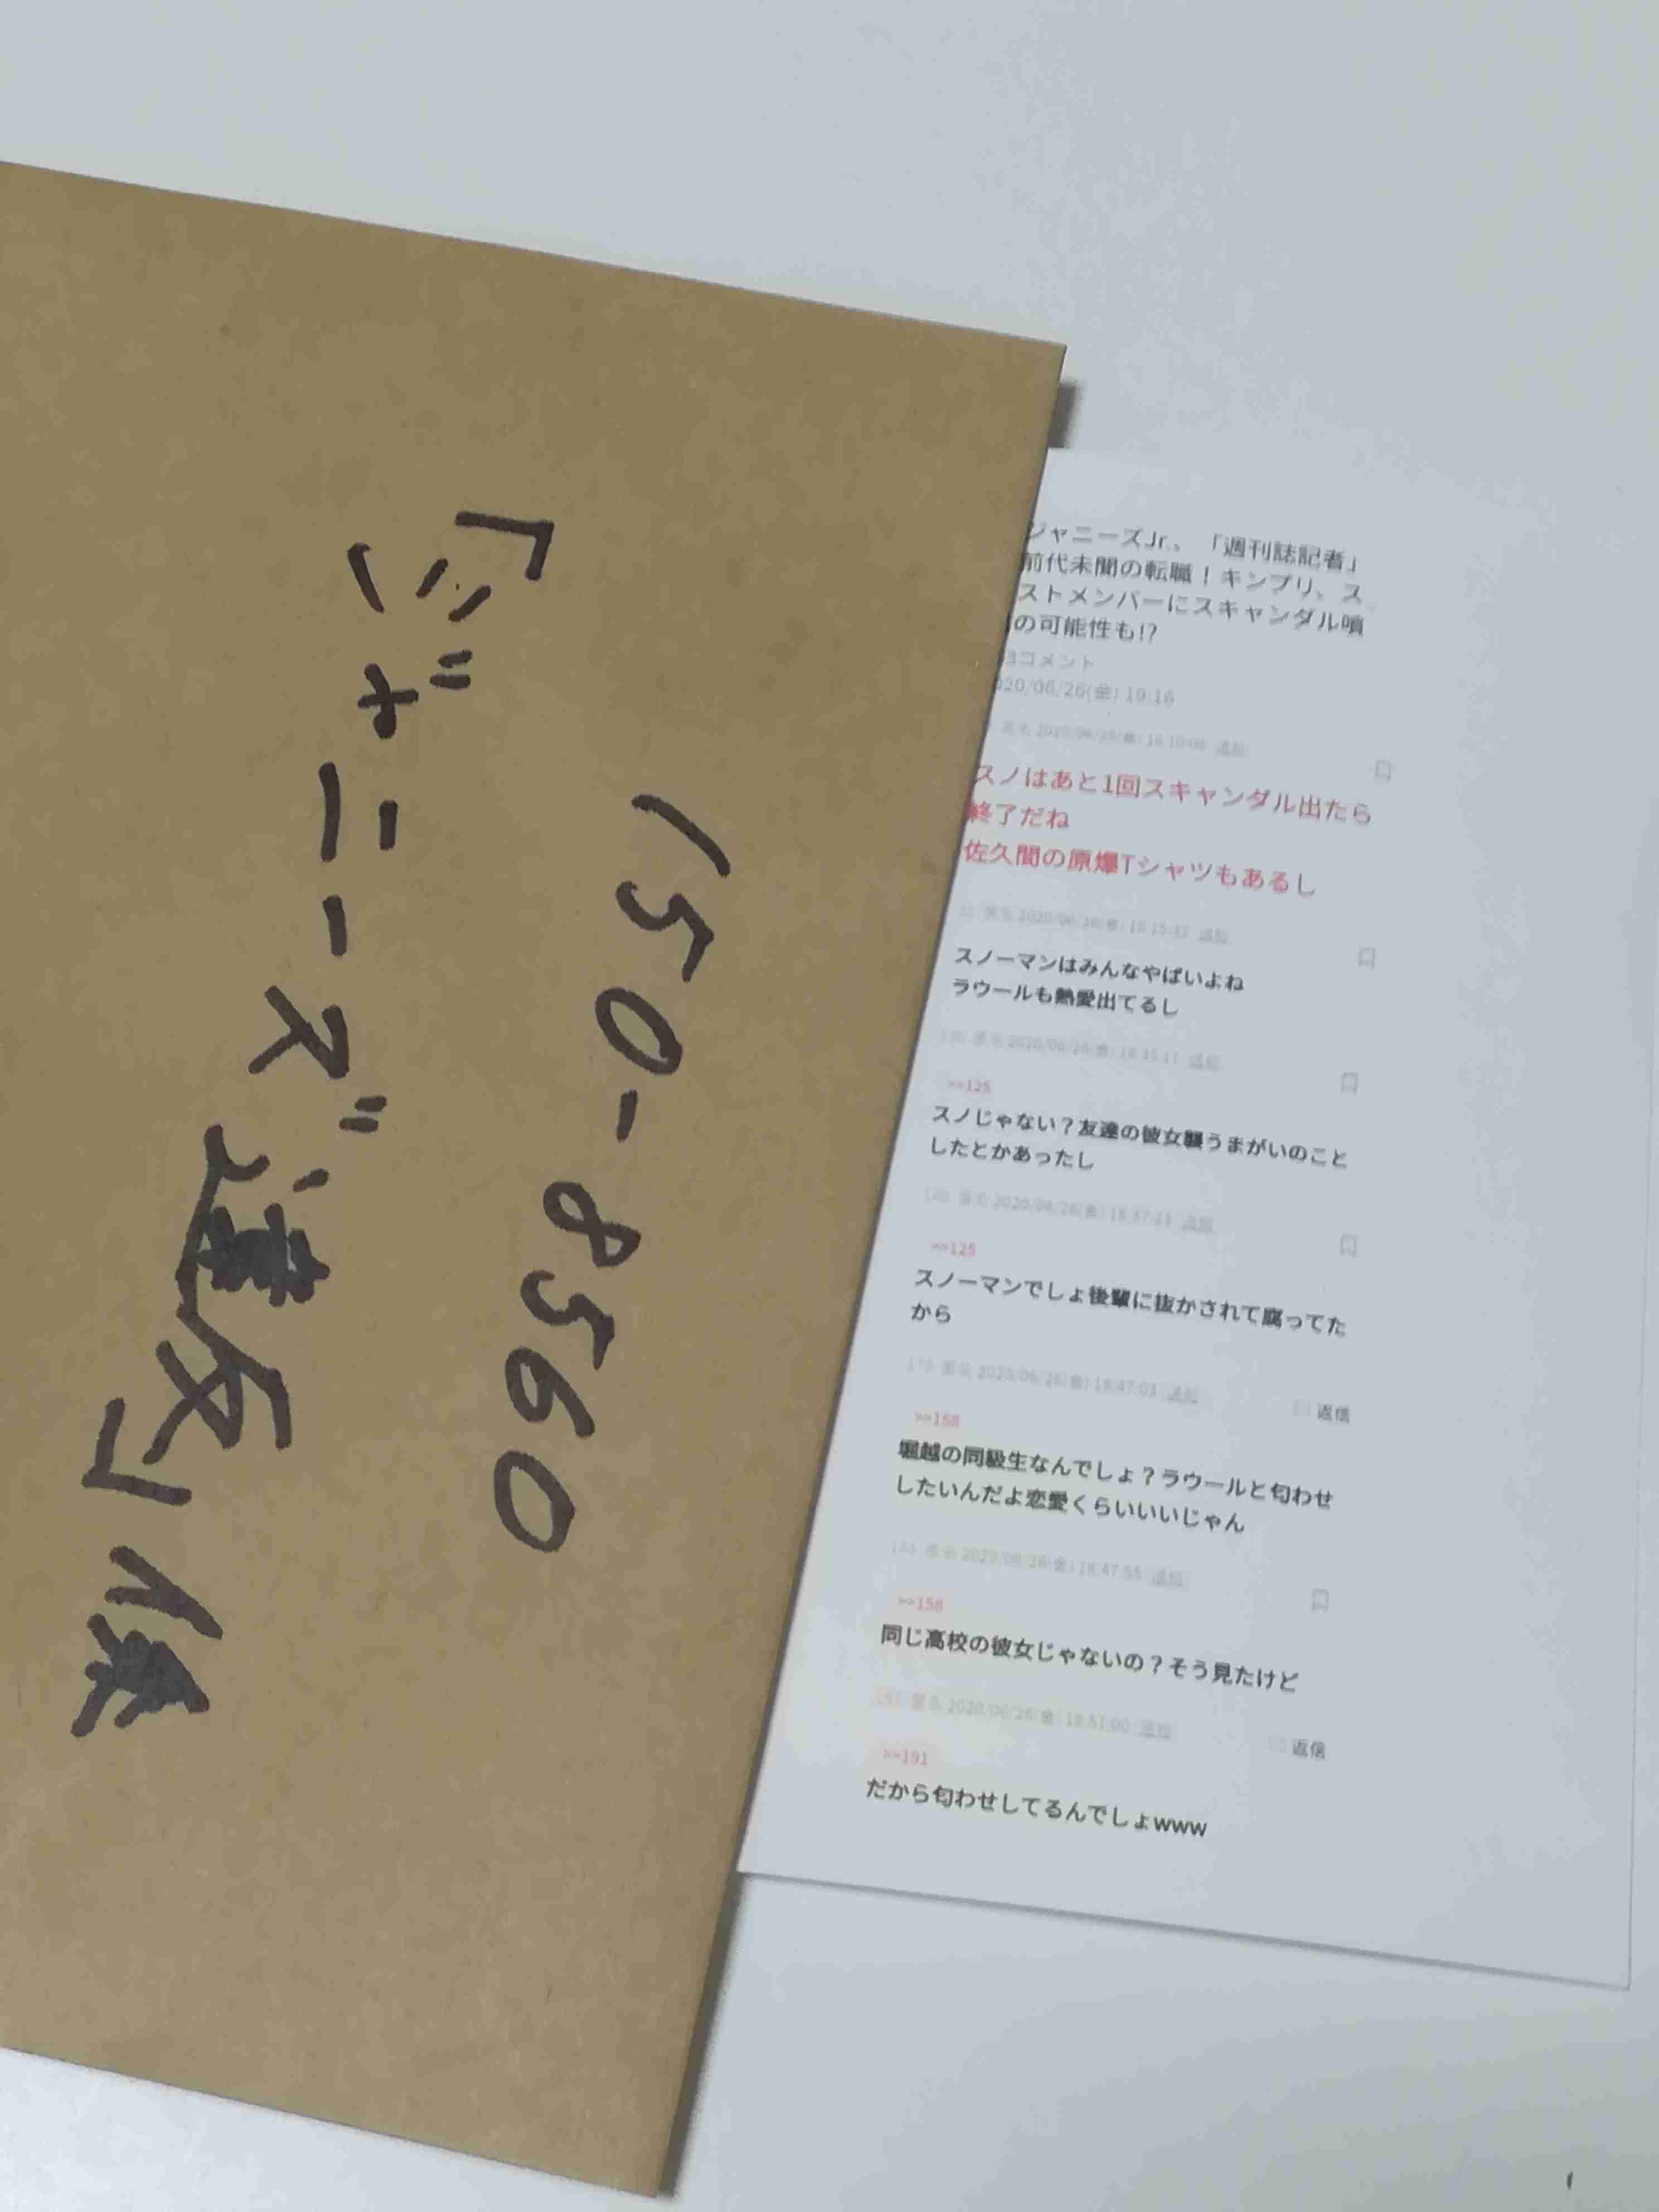 150-8560
「ジャニーズ違反」係
ジャニーズJr.、「週刊誌記者」
前代未聞の転職！キンプリ、ス
ストメンバーにスキャンダル噴
の可能性も!?
3コメント
020/06/26(金) 19:16
匿名 2020/06/26(金) 18:10:00 通報
スノはあと1回スキャンダル出たら
終了だね
佐久間の原爆Tシャツもあるし
匿名 2020/06/26(金) 18:15:32 通報
スノーマンはみんなやばいよね
ラウールも熱愛出てるし
匿名 2020/06/26(金) 通報
>>125
スノじゃない？友達の彼女襲うまがいのこと
したとかあったし
匿名 2020/06/26(金) 通報
>>125
スノーマンでしょ後輩に抜かされて腐ってた
から
匿名 2020/06/26(金) 18:47:03 通報
返信
>>158
堀越の同級生なんでしょ？ラウールと匂わせ
したいんだよ恋愛くらいいいじゃん
匿名 2020/06/26(金) 18:47:55 通報
>>158
同じ高校の彼女じゃないの？そう見たけど
197 匿名 2020/06/26(金) 18:51:00 通報
返信
>>191
だから匂わせしてるんでしょwww